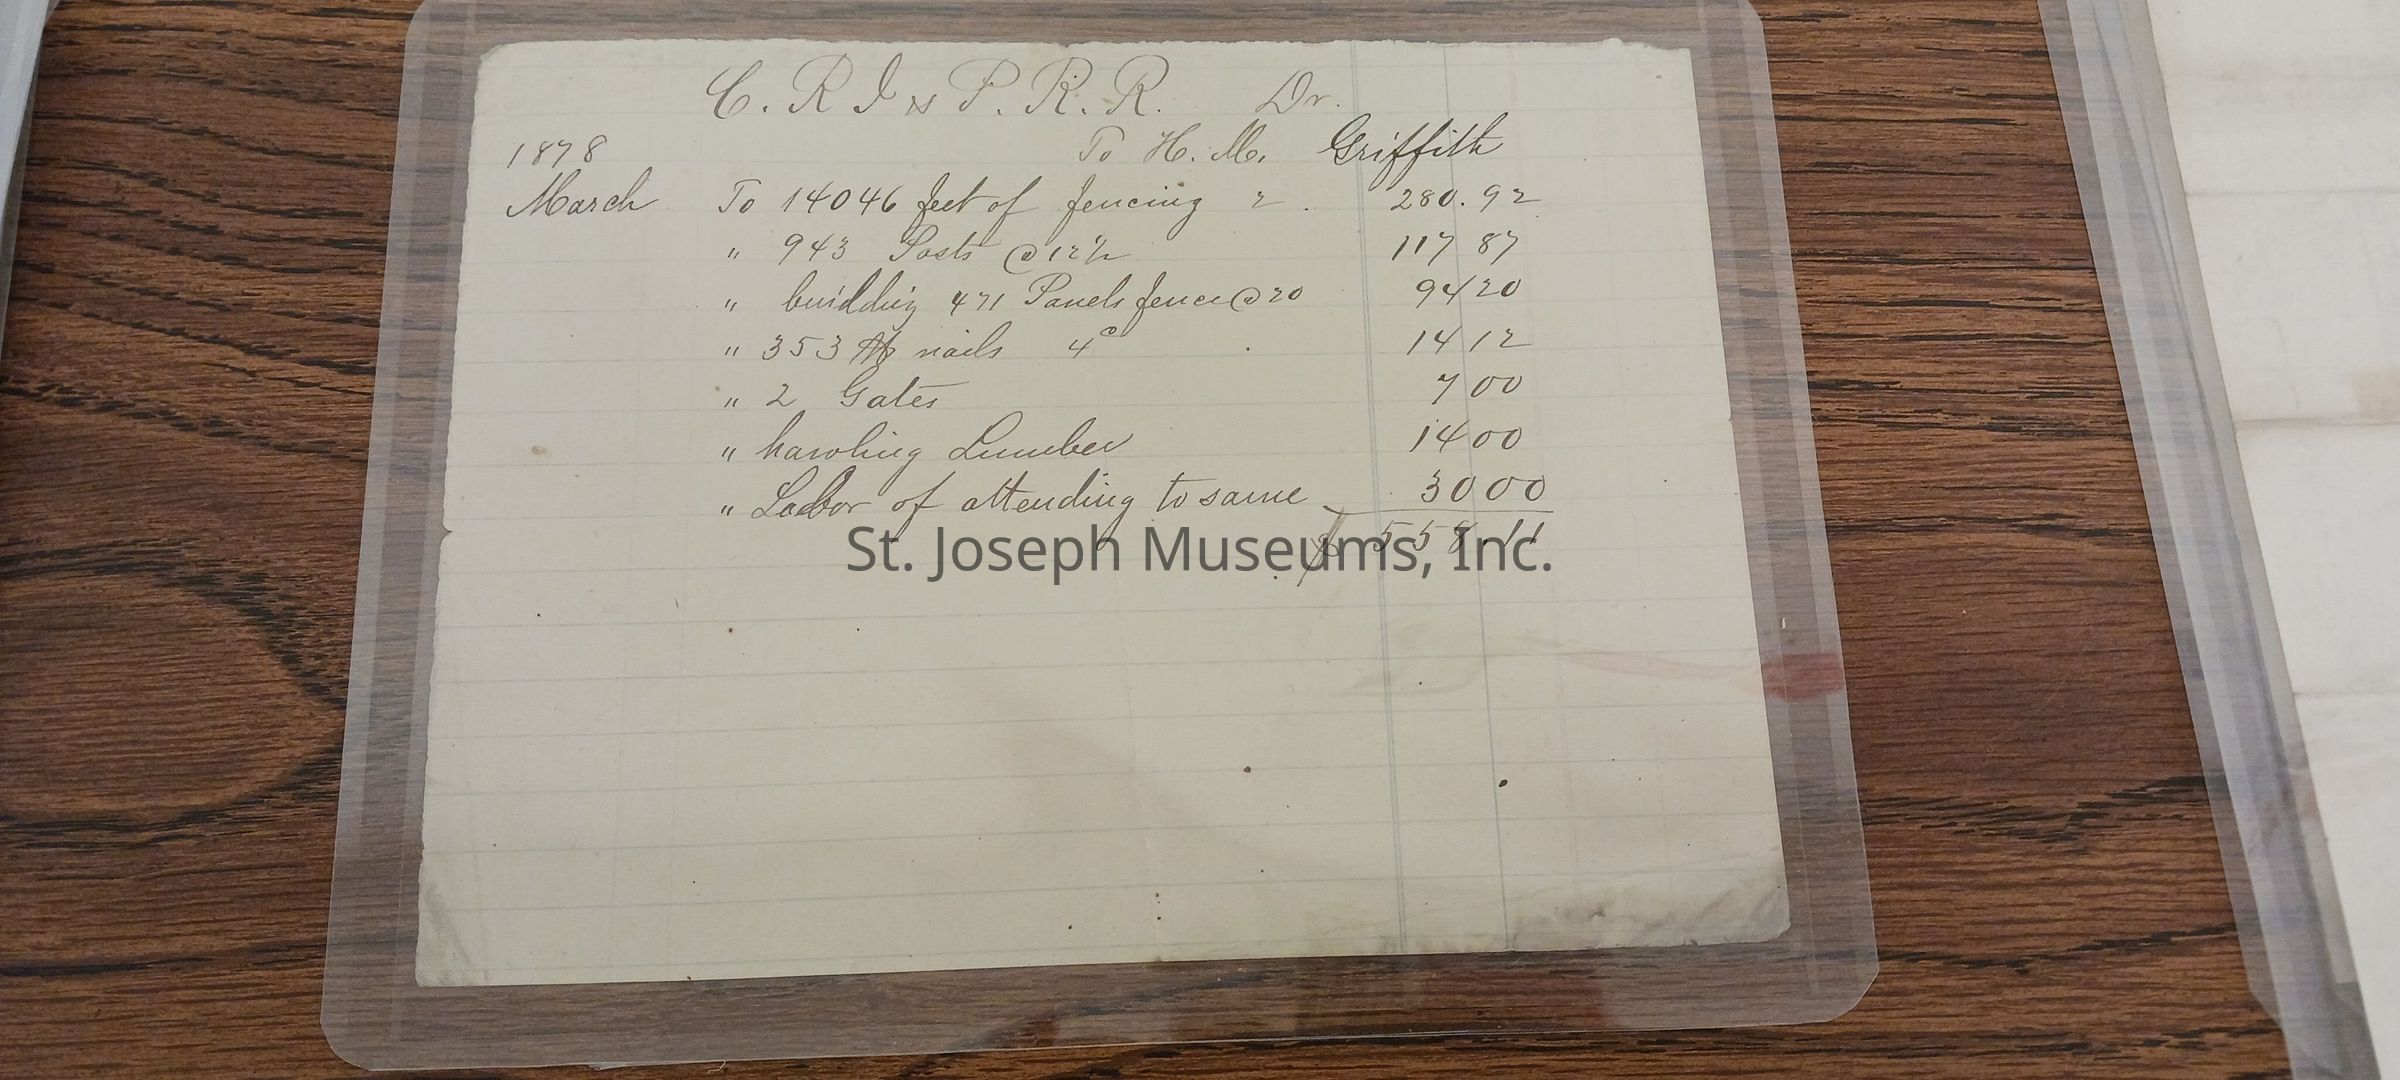 C. R I & P. R. R. Dr.
1878 To H. M. Griffith
March To 14046 feet of fencing 2 280.92
" 943 Posts @ 12 1/2 117 87
" building 471 Panels fence @ 20 94 20
" 353 lb nails 4c 14 12
" 2 Gates 7 00
" hawling Lumber 14 00
" Labor of attending to same 30 00
$ 558.11
St. Joseph Museums, Inc.